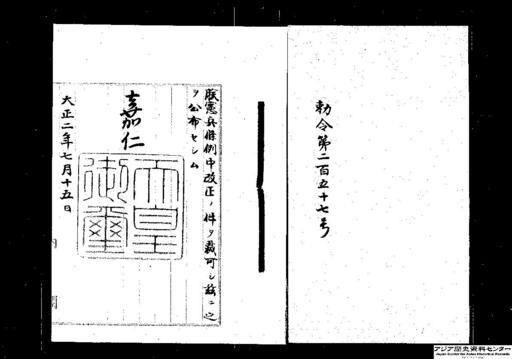 勅令第二百五十七号
朕憲兵條例中改正ノ件ヲ裁可シ茲ニ之
ヲ公布セシム
嘉仁
天皇
御璽
大正二年七月十五日
内閣
アジア歴史資料センター
Japan Center for Asian Historical Records